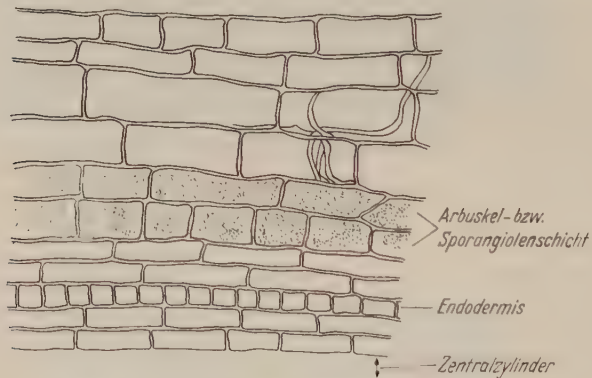 Arbuskel- bzw.
Sporangiolenschicht
Endodermis
Zentralzylinder